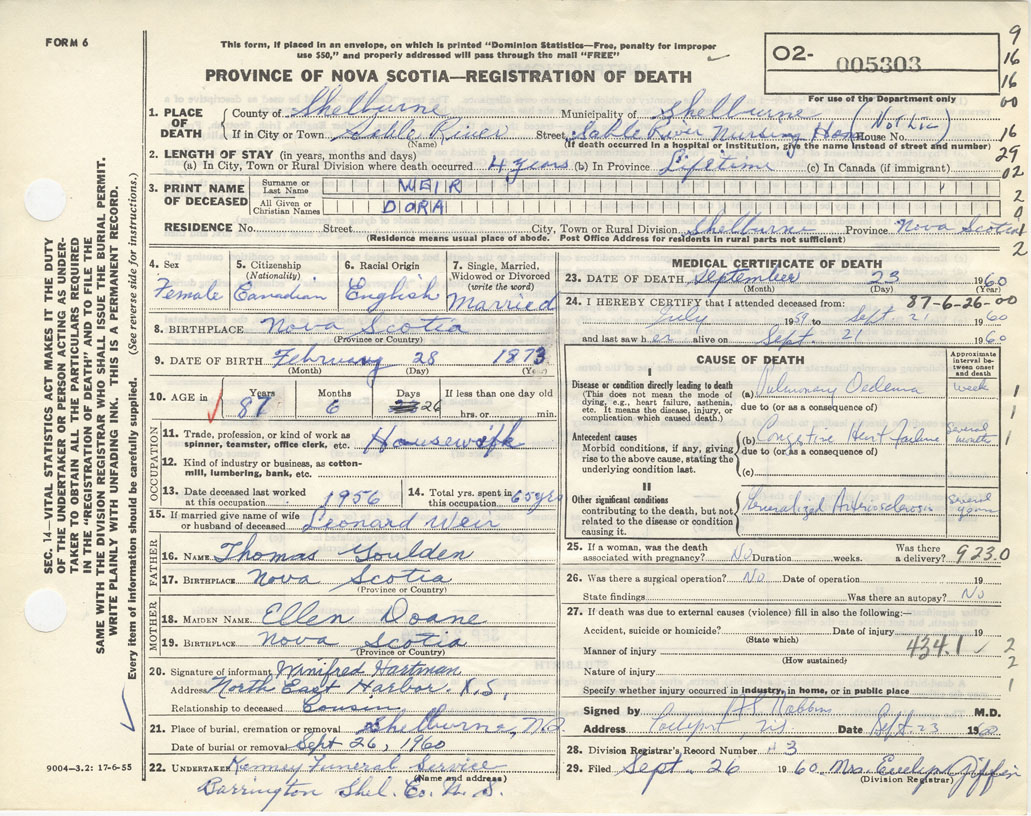 FORM 6
This form, if placed in an envelope, on which is printed "Dominion Statistics—Free, penalty for improper
use $50," and properly addressed will pass through the mail "FREE"
PROVINCE OF NOVA SCOTIA—REGISTRATION OF DEATH
O2- 005303
For use of the Department only
9
16
16
00
16
29
02
2
2
1. PLACE OF DEATH
County of Shelburne Municipality of Shelburne
If in City or Town Sable River Street Sable River Nursing Home House No. (Not Lic)
(Name) (If death occurred in a hospital or institution, give the name instead of street and number)
2. LENGTH OF STAY (in years, months and days)
(a) In City, Town or Rural Division where death occurred 4 years (b) In Province Lifetime (c) In Canada (if immigrant)
3. PRINT NAME OF DECEASED
Surname or Last Name WEIR
All Given or Christian Names DORA
RESIDENCE No. Street City, Town or Rural Division Shelburne Province Nova Scotia
(Residence means usual place of abode. Post Office Address for residents in rural parts not sufficient)
4. Sex 5. Citizenship (Nationality) 6. Racial Origin 7. Single, Married, Widowed or Divorced (write the word)
Female Canadian English Married
8. BIRTHPLACE Nova Scotia
(Province or Country)
9. DATE OF BIRTH February 28 1873
(Month) (Day) (Year)
10. AGE in Years Months Days If less than one day
87 6 26 hrs. or min.
OCCUPATION
11. Trade, profession, or kind of work as spinner, teamster, office clerk, etc. Housewife
12. Kind of industry or business, as cotton-mill, lumbering, bank, etc.
13. Date deceased last worked at this occupation 1956 14. Total yrs. spent in this occupation 65 yrs
15. If married give name of wife or husband of deceased Leonard Weir
FATHER
16. NAME Thomas Goulden
17. BIRTHPLACE Nova Scotia
(Province or Country)
MOTHER
18. MAIDEN NAME Ellen Doane
19. BIRTHPLACE Nova Scotia
(Province or Country)
20. Signature of informant Winifred Hartman
Address North East Harbor N.S.
Relationship to deceased Cousin
21. Place of burial, cremation or removal Shelburne, N.S.
Date of burial or removal Sept 26, 1960
22. UNDERTAKER Kenney Funeral Service
(Name and address)
Barrington Shel. Co. N. S.
MEDICAL CERTIFICATE OF DEATH
23. DATE OF DEATH September 23 1960
(Month) (Day) (Year)
24. I HEREBY CERTIFY that I attended deceased from: 87-6-26-00
July 1959 to Sept 21 1960
and last saw her alive on Sept. 21 1960
CAUSE OF DEATH
Approximate interval between onset and death
I
Disease or condition directly leading to death
(This does not mean the mode of dying, e.g., heart failure, asthenia, etc. It means the disease, injury, or complication which caused death.)
(a) Pulmonary Oedema week
due to (or as a consequence of)
Antecedent causes
Morbid conditions, if any, giving rise to the above cause, stating the underlying condition last.
(b) Congestive Heart Failure Several months
due to (or as a consequence of)
(c)
II
Other significant conditions contributing to the death, but not related to the disease or condition causing it.
Generalized Arteriosclerosis Several years
1
1
1
25. If a woman, was the death associated with pregnancy? No Duration weeks. Was there a delivery? 9230
26. Was there a surgical operation? No Date of operation 19
State findings Was there an autopsy? No
27. If death was due to external causes (violence) fill in also the following:—
Accident, suicide or homicide? Date of injury 19
(State which)
Manner of injury 434.1
(How sustained)
Nature of injury
Specify whether injury occurred in industry, in home, or in public place
2
2
1
Signed by M.D.
Address Lockeport NS Date Sept 23 1960
28. Division Registrar's Record Number # 3
29. Filed Sept. 26 1960 Mrs. Evelyn
(Division Registrar)
SEC. 14—VITAL STATISTICS ACT MAKES IT THE DUTY
OF THE UNDERTAKER OR PERSON ACTING AS UNDER-
TAKER TO OBTAIN ALL THE PARTICULARS REQUIRED
IN THE "REGISTRATION OF DEATH" AND TO FILE THE
SAME WITH THE DIVISION REGISTRAR WHO SHALL ISSUE THE BURIAL PERMIT.
WRITE PLAINLY WITH UNFADING INK. THIS IS A PERMANENT RECORD.
Every item of information should be carefully supplied. (See reverse side for instructions.)
9004—3.2: 17-6-55